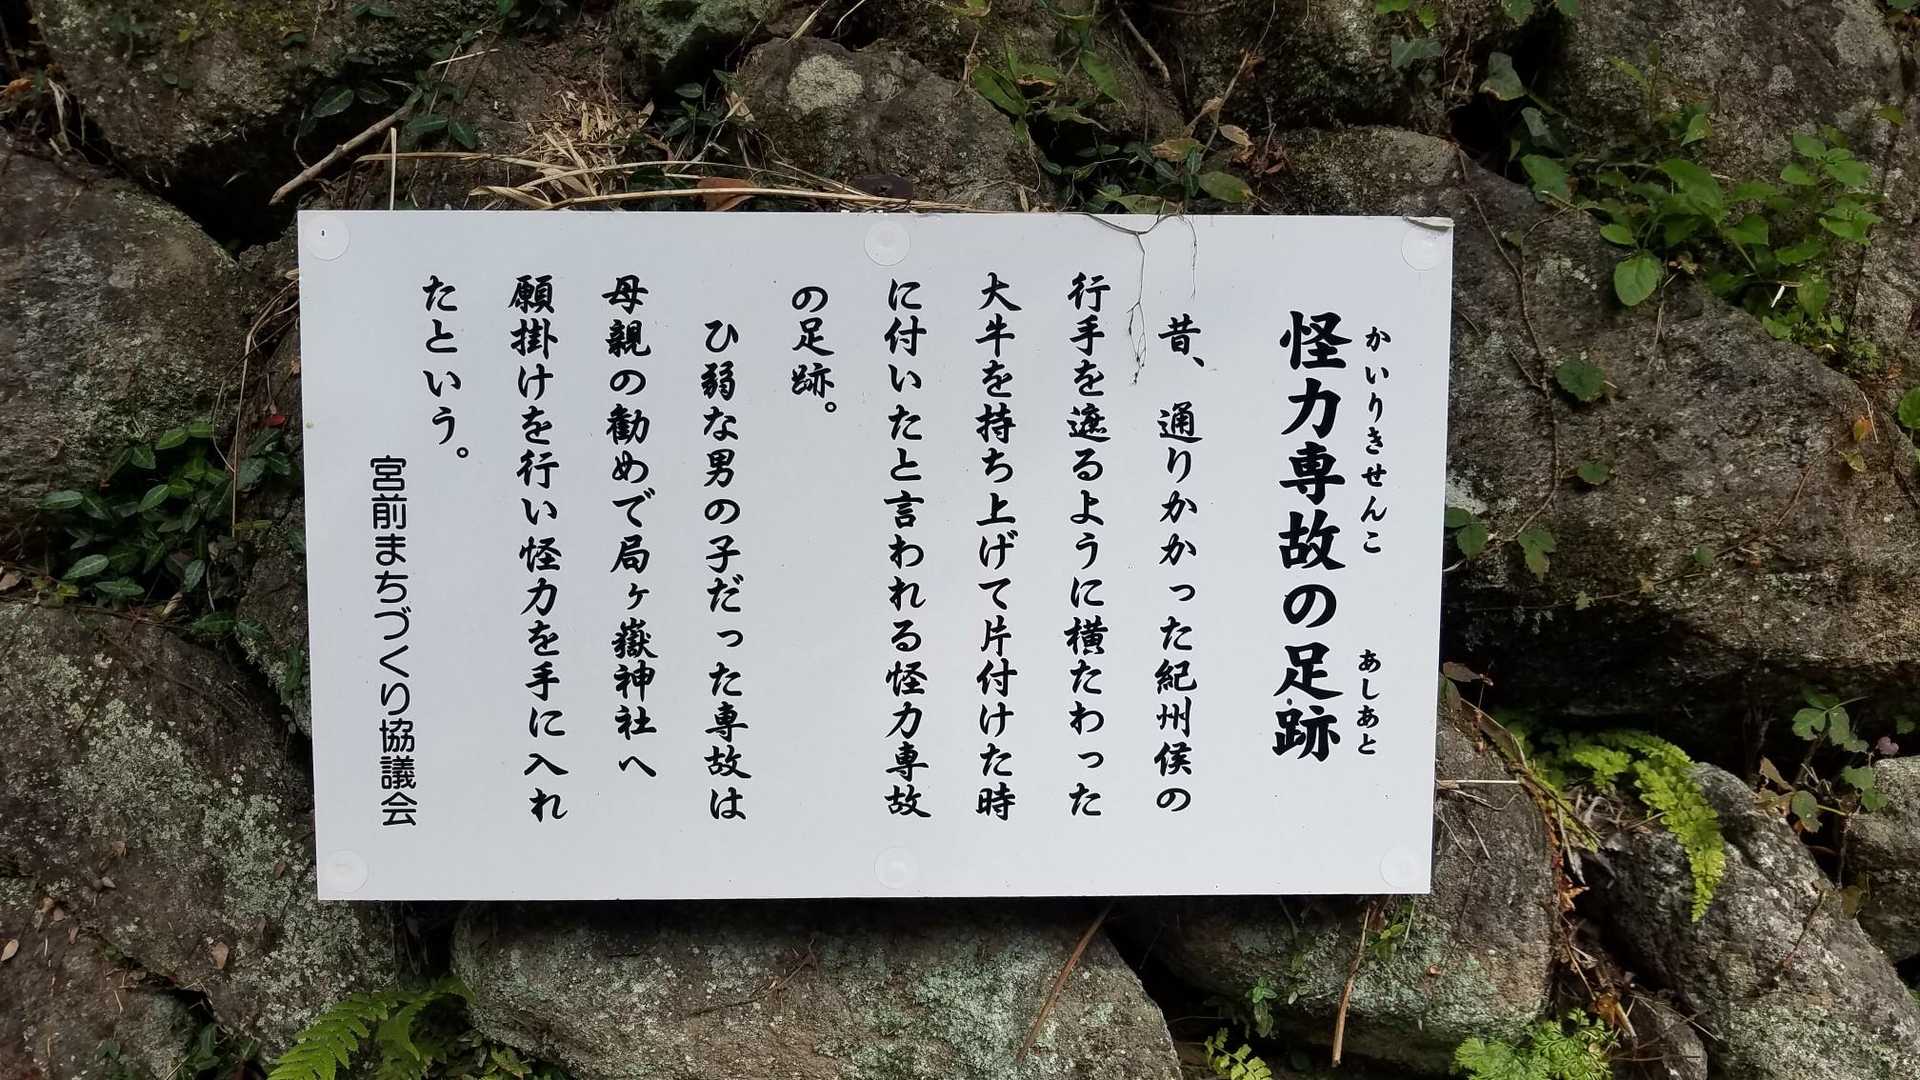 怪力専故の足跡
かいりきせんこ
あしあと
昔、通りかかった紀州侯の
行手を遮るように横たわった
大牛を持ち上げて片付けた時
に付いたと言われる怪力専故
の足跡。
ひ弱な男の子だった専故は
母親の勧めで局ヶ嶽神社へ
願掛けを行い怪力を手に入れ
たという。
宮前まちづくり協議会